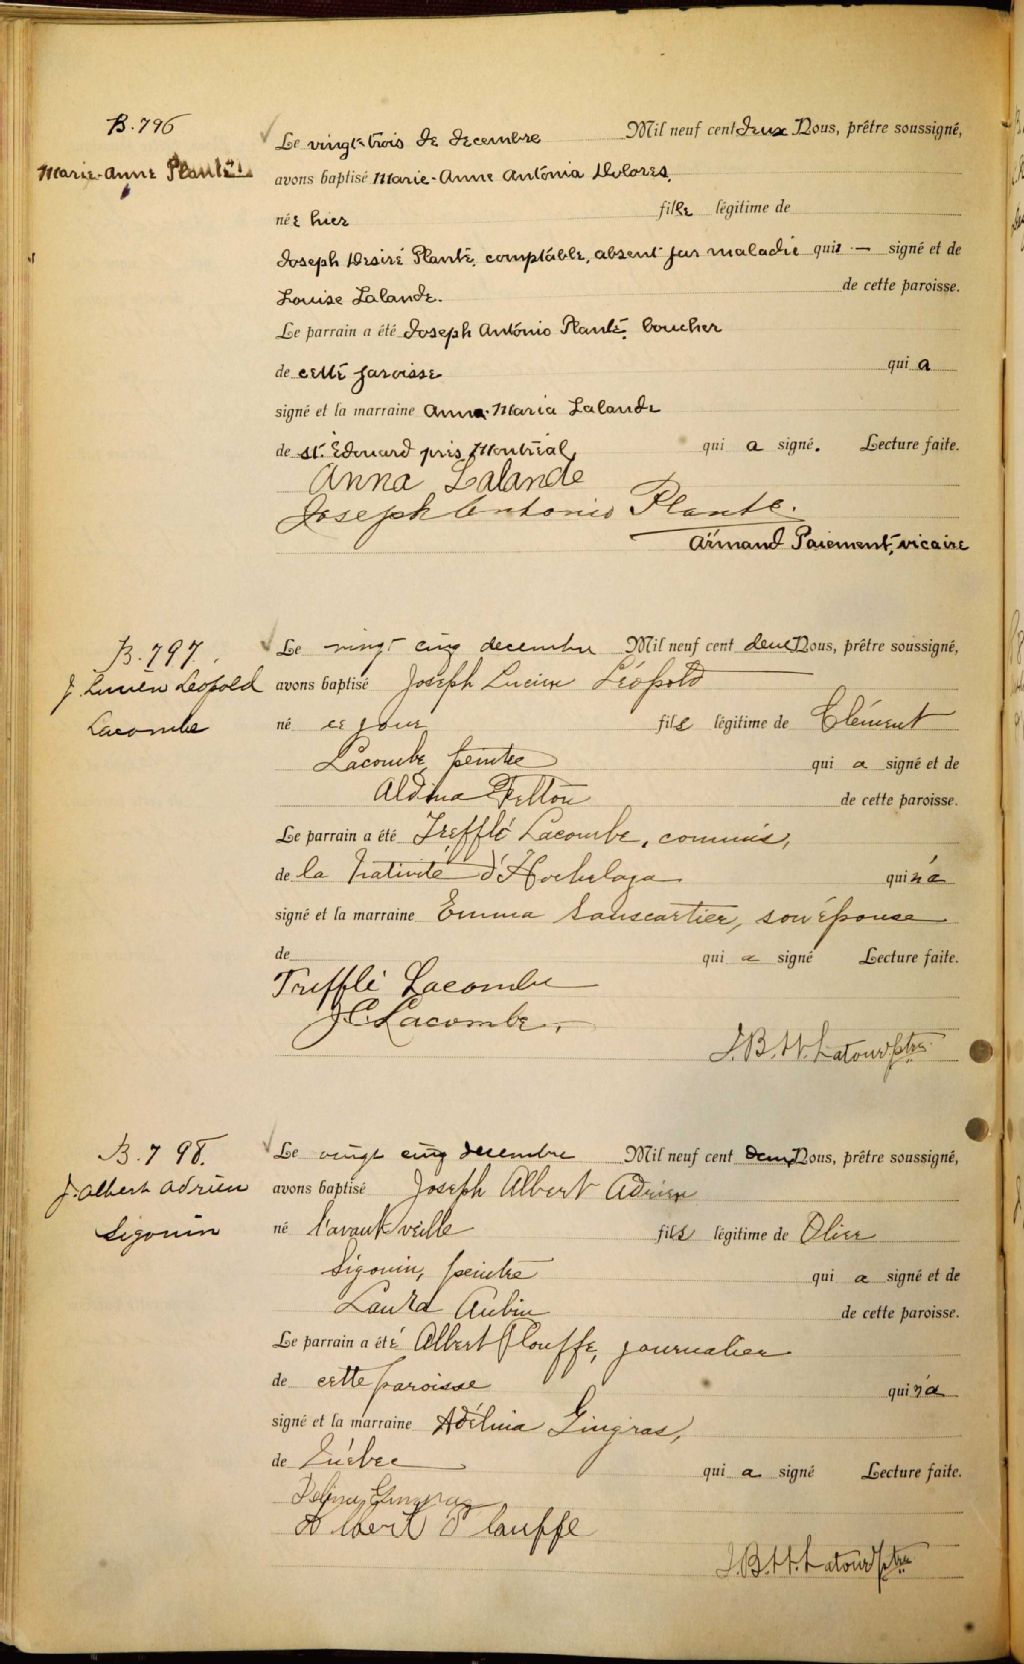 B.796
Marie-Anne Planté
Le vingt-trois de decembre Mil neuf cent deux Nous, prêtre soussigné,
avons baptisé Marie-Anne Antonia Dolores,
née hier fille légitime de
Joseph Desiré Planté, comptable, absent par maladie qui — signé et de
Louise Lalande. de cette paroisse.
Le parrain a été Joseph Antonio Planté, boucher
de cette paroisse qui a
signé et la marraine Anna-Maria Lalande
de St. Edouard près Montréal, qui a signé. Lecture faite.
Anna Lalande
Joseph Antonio Plante.
Armand Paiement, vicaire
B.797.
J. Lucien Léopold
Lacombe
Le vingt cinq decembre Mil neuf cent deux Nous, prêtre soussigné,
avons baptisé Joseph Lucien Léopold
né ce jour fils légitime de Clément
Lacombe, peintre qui a signé et de
Aldina Felton de cette paroisse.
Le parrain a été Trefflé Lacombe, commis,
de la Nativité d'Hochelaga qui n'a
signé et la marraine Emma Sanscartier, son épouse
de qui a signé Lecture faite.
Trefflé Lacombe
J.C. Lacombe,
J.B.H. Latour ptre
B.798.
J. Albert Adrien
Sigouin
Le vingt cinq decembre Mil neuf cent deux Nous, prêtre soussigné,
avons baptisé Joseph Albert Adrien
né l'avant veille fils légitime de Olier
Sigouin, peintre qui a signé et de
Laura Aubin de cette paroisse.
Le parrain a été Albert Plouffe, journalier
de cette paroisse qui n'a
signé et la marraine Adélina Gingras,
de Québec qui a signé Lecture faite.
Delina Gingras
Albert Plouffe
J.B.H. Latour ptre